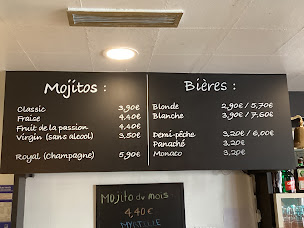 Mojitos :
Classic 3,90€
Fraise 4,40€
Fruit de la passion 4,40€
Virgin (sans alcool) 3,50€
Royal (champagne) 5,90€
Bières :
Blonde 2,90€ / 5,70€
Blanche 3,90€ / 7,60€
Demi-pêche 3,20€ / 6,00€
Panaché 3,20€
Monaco 3,20€
MOJITO du MOIS
4,40€
MYRTILLE